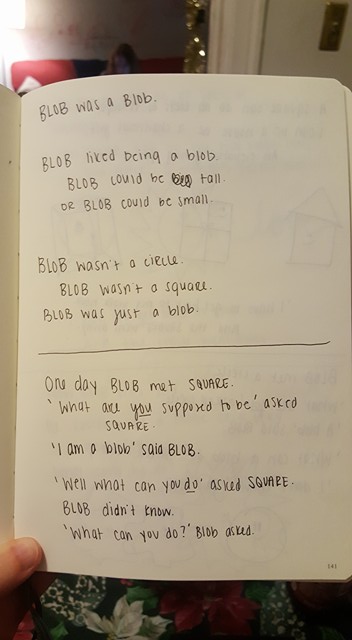 BLOB was a Blob.
BLOB liked being a blob.
BLOB could be tall.
OR BLOB could be small.
BLOB wasn't a circle.
BLOB wasn't a square.
BLOB was just a blob.
One day BLOB met SQUARE.
'What are you supposed to be' asked
SQUARE.
'I am a blob' said BLOB.
'Well what can you do' asked SQUARE.
BLOB didn't know.
'What can you do?' Blob asked.
141